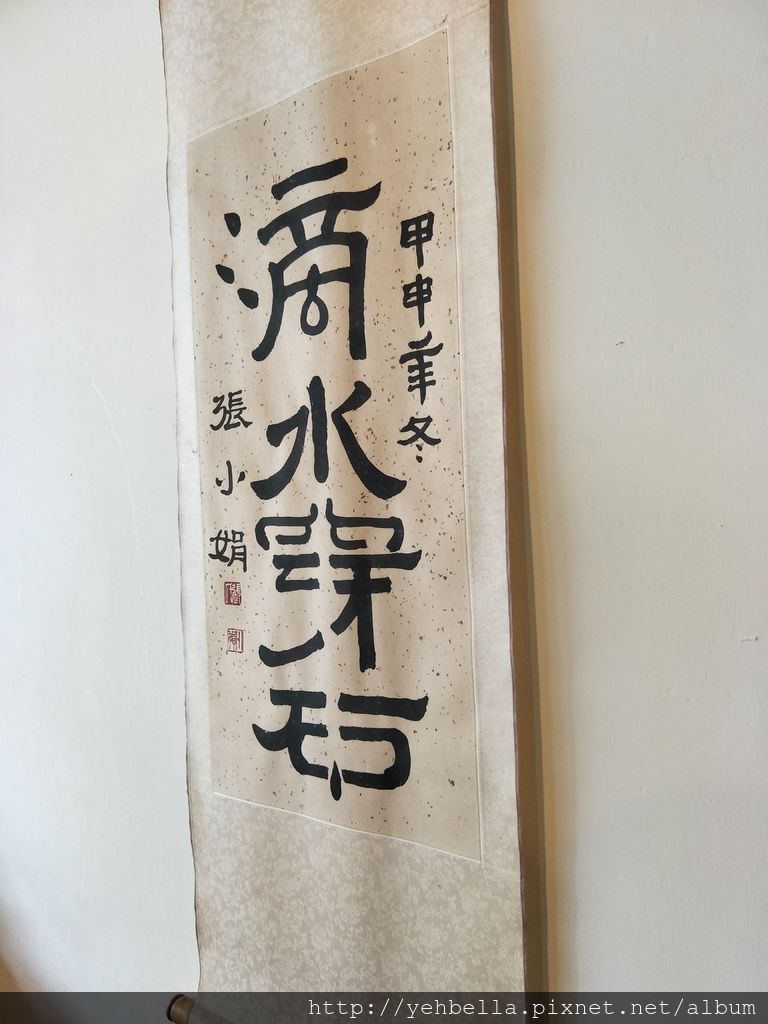 甲申年冬
滴水穿石
張小娟
http://yehbella.pixnet.net/album